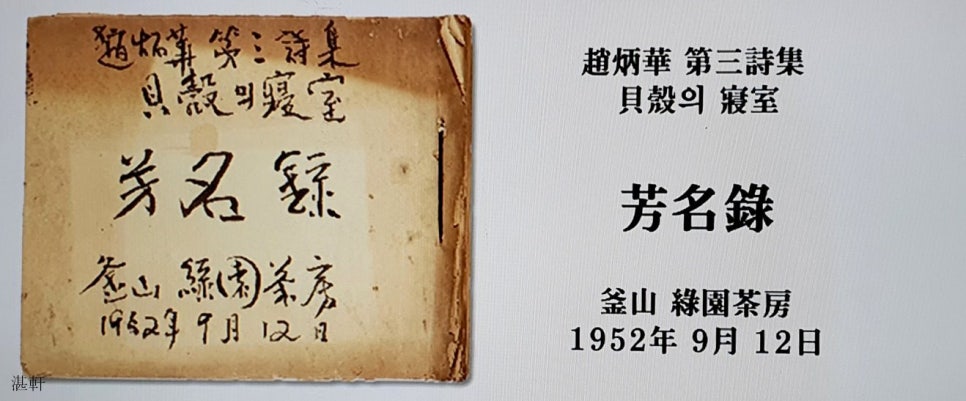 趙炳華 第三詩集
貝殼의 寢室
芳名錄
釜山 綠園茶房
1952年 9月 12日
湛軒
趙炳華 第三詩集
貝殼의 寢室
芳名錄
釜山 綠園茶房
1952年 9月 12日